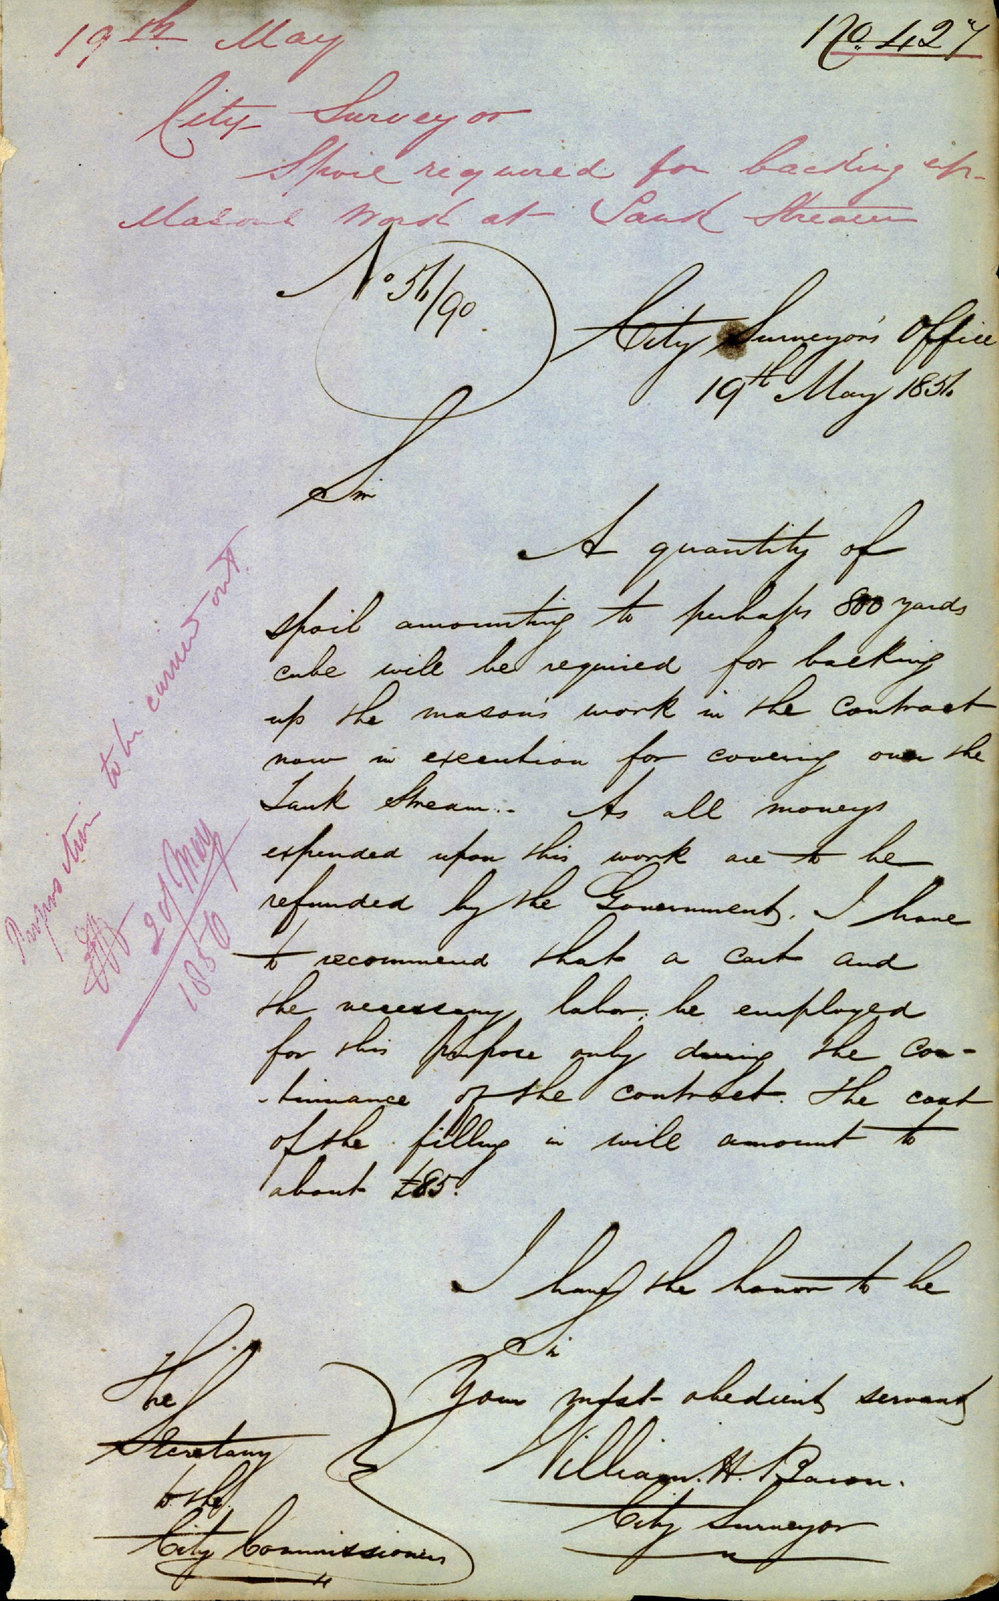 19th May
No. 427
City Surveyor
Spoil required for backing up
Masons Work at Tank Stream
No 56/90
City Surveyor's Office
19th May 1856
Sir
A quantity of
spoil amounting to perhaps 800 yards
cube will be required for backing
up the mason's work in the contract
now in execution for covering over the
Tank Stream.- As all moneys
expended upon this work are to be
refunded by the Government, I have
to recommend that a cart and
the necessary labor be employed
for this purpose only during the con-
-tinuance of the contract. The cost
of the filling in will amount to
about £85.
I have the honor to be
Sir
Your most obedient servant
William. H. Baron.
City Surveyor
The
Secretary
to the
City Commissioners
Proposition to be carried out
20 May
1856